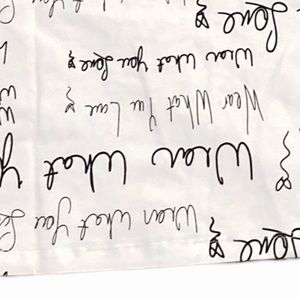 Love
Wear What You
Wear What
Wear What You Love
Wear What You Love
Love